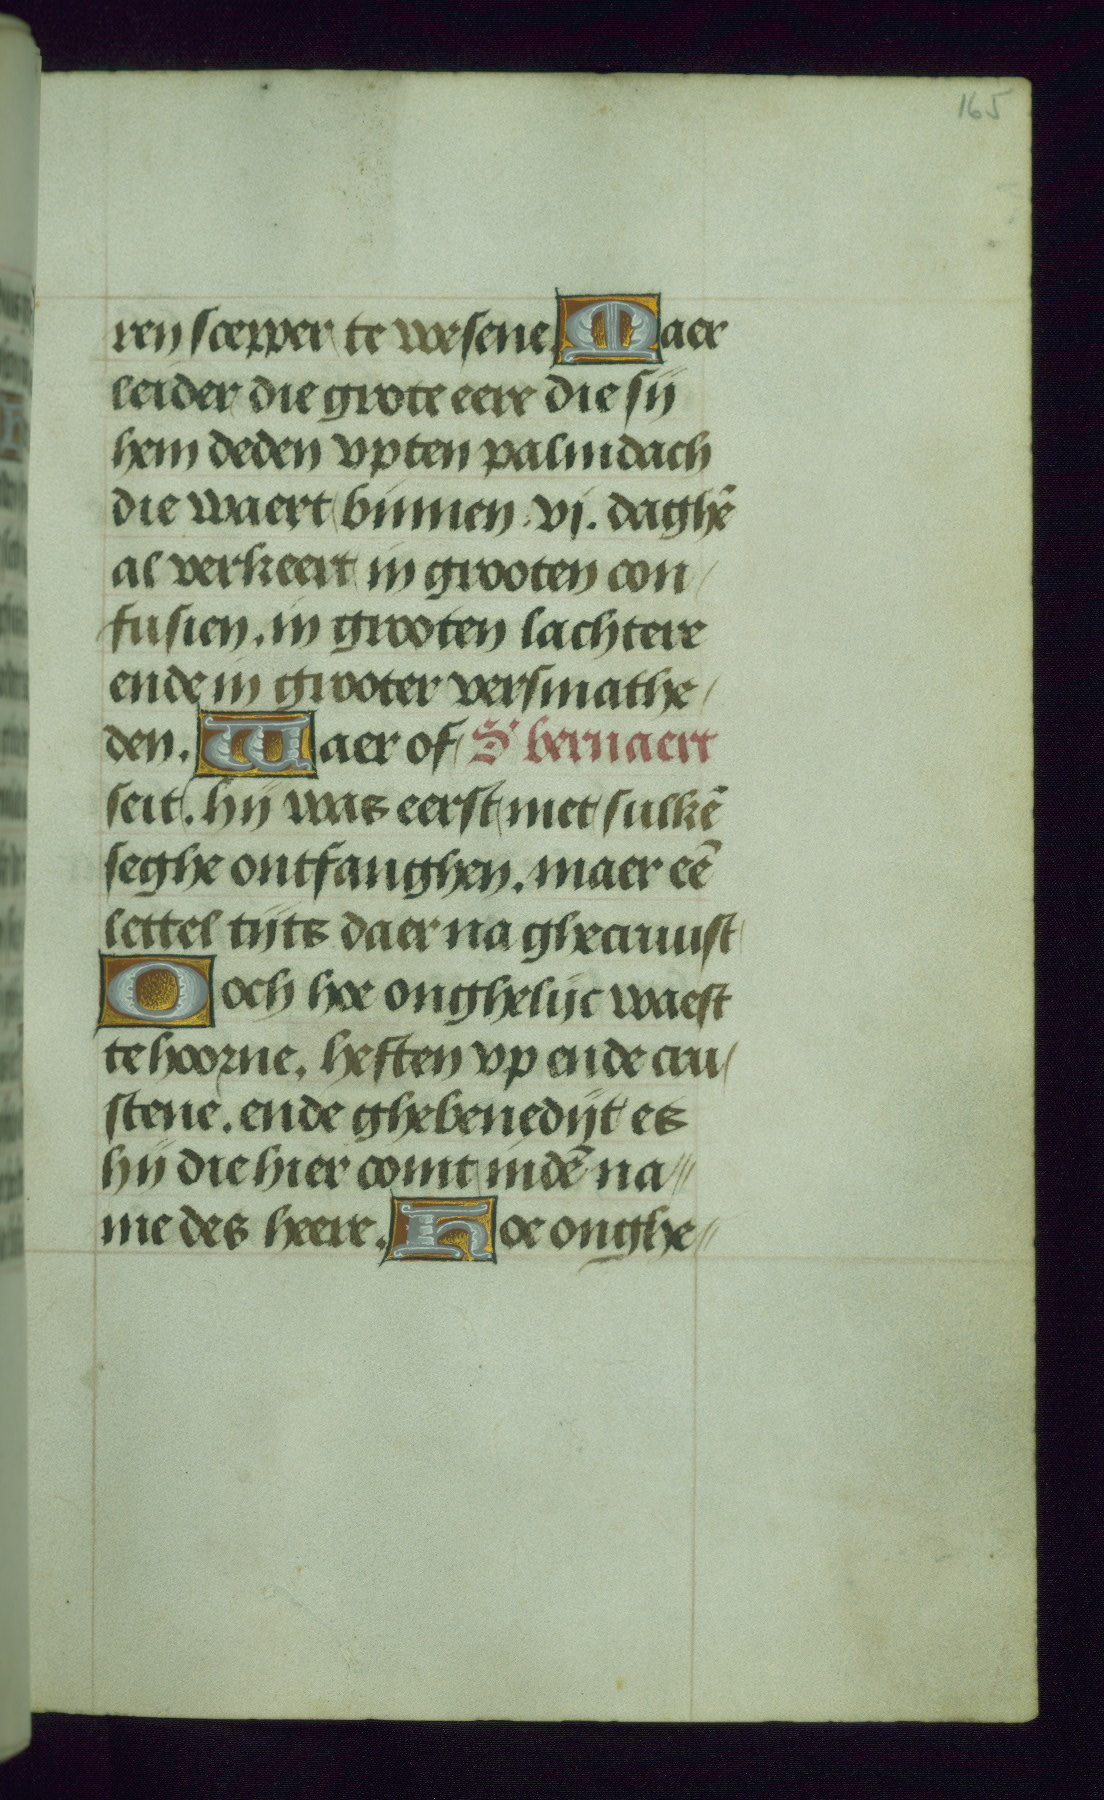 165
ren scepper te wesene. Maer
leider die grote eere die sij
hem deden vpten palmdach
die waert binnen .vj. daghē
al verkeert in grooten con
fusien. in grooten lachtere
ende in grooter versmathe
den. Waer of S bernaert
seit. hij was eerst met sulkē
seghe ontfanghen. maer eē
lettel tijts daer na ghecruust
Ooch hoe onghelijc waest
te hoorne. heften vp ende cru
stene. ende ghebenedijt es
hij die hier comt indē na
me des heere. Hoe onghe